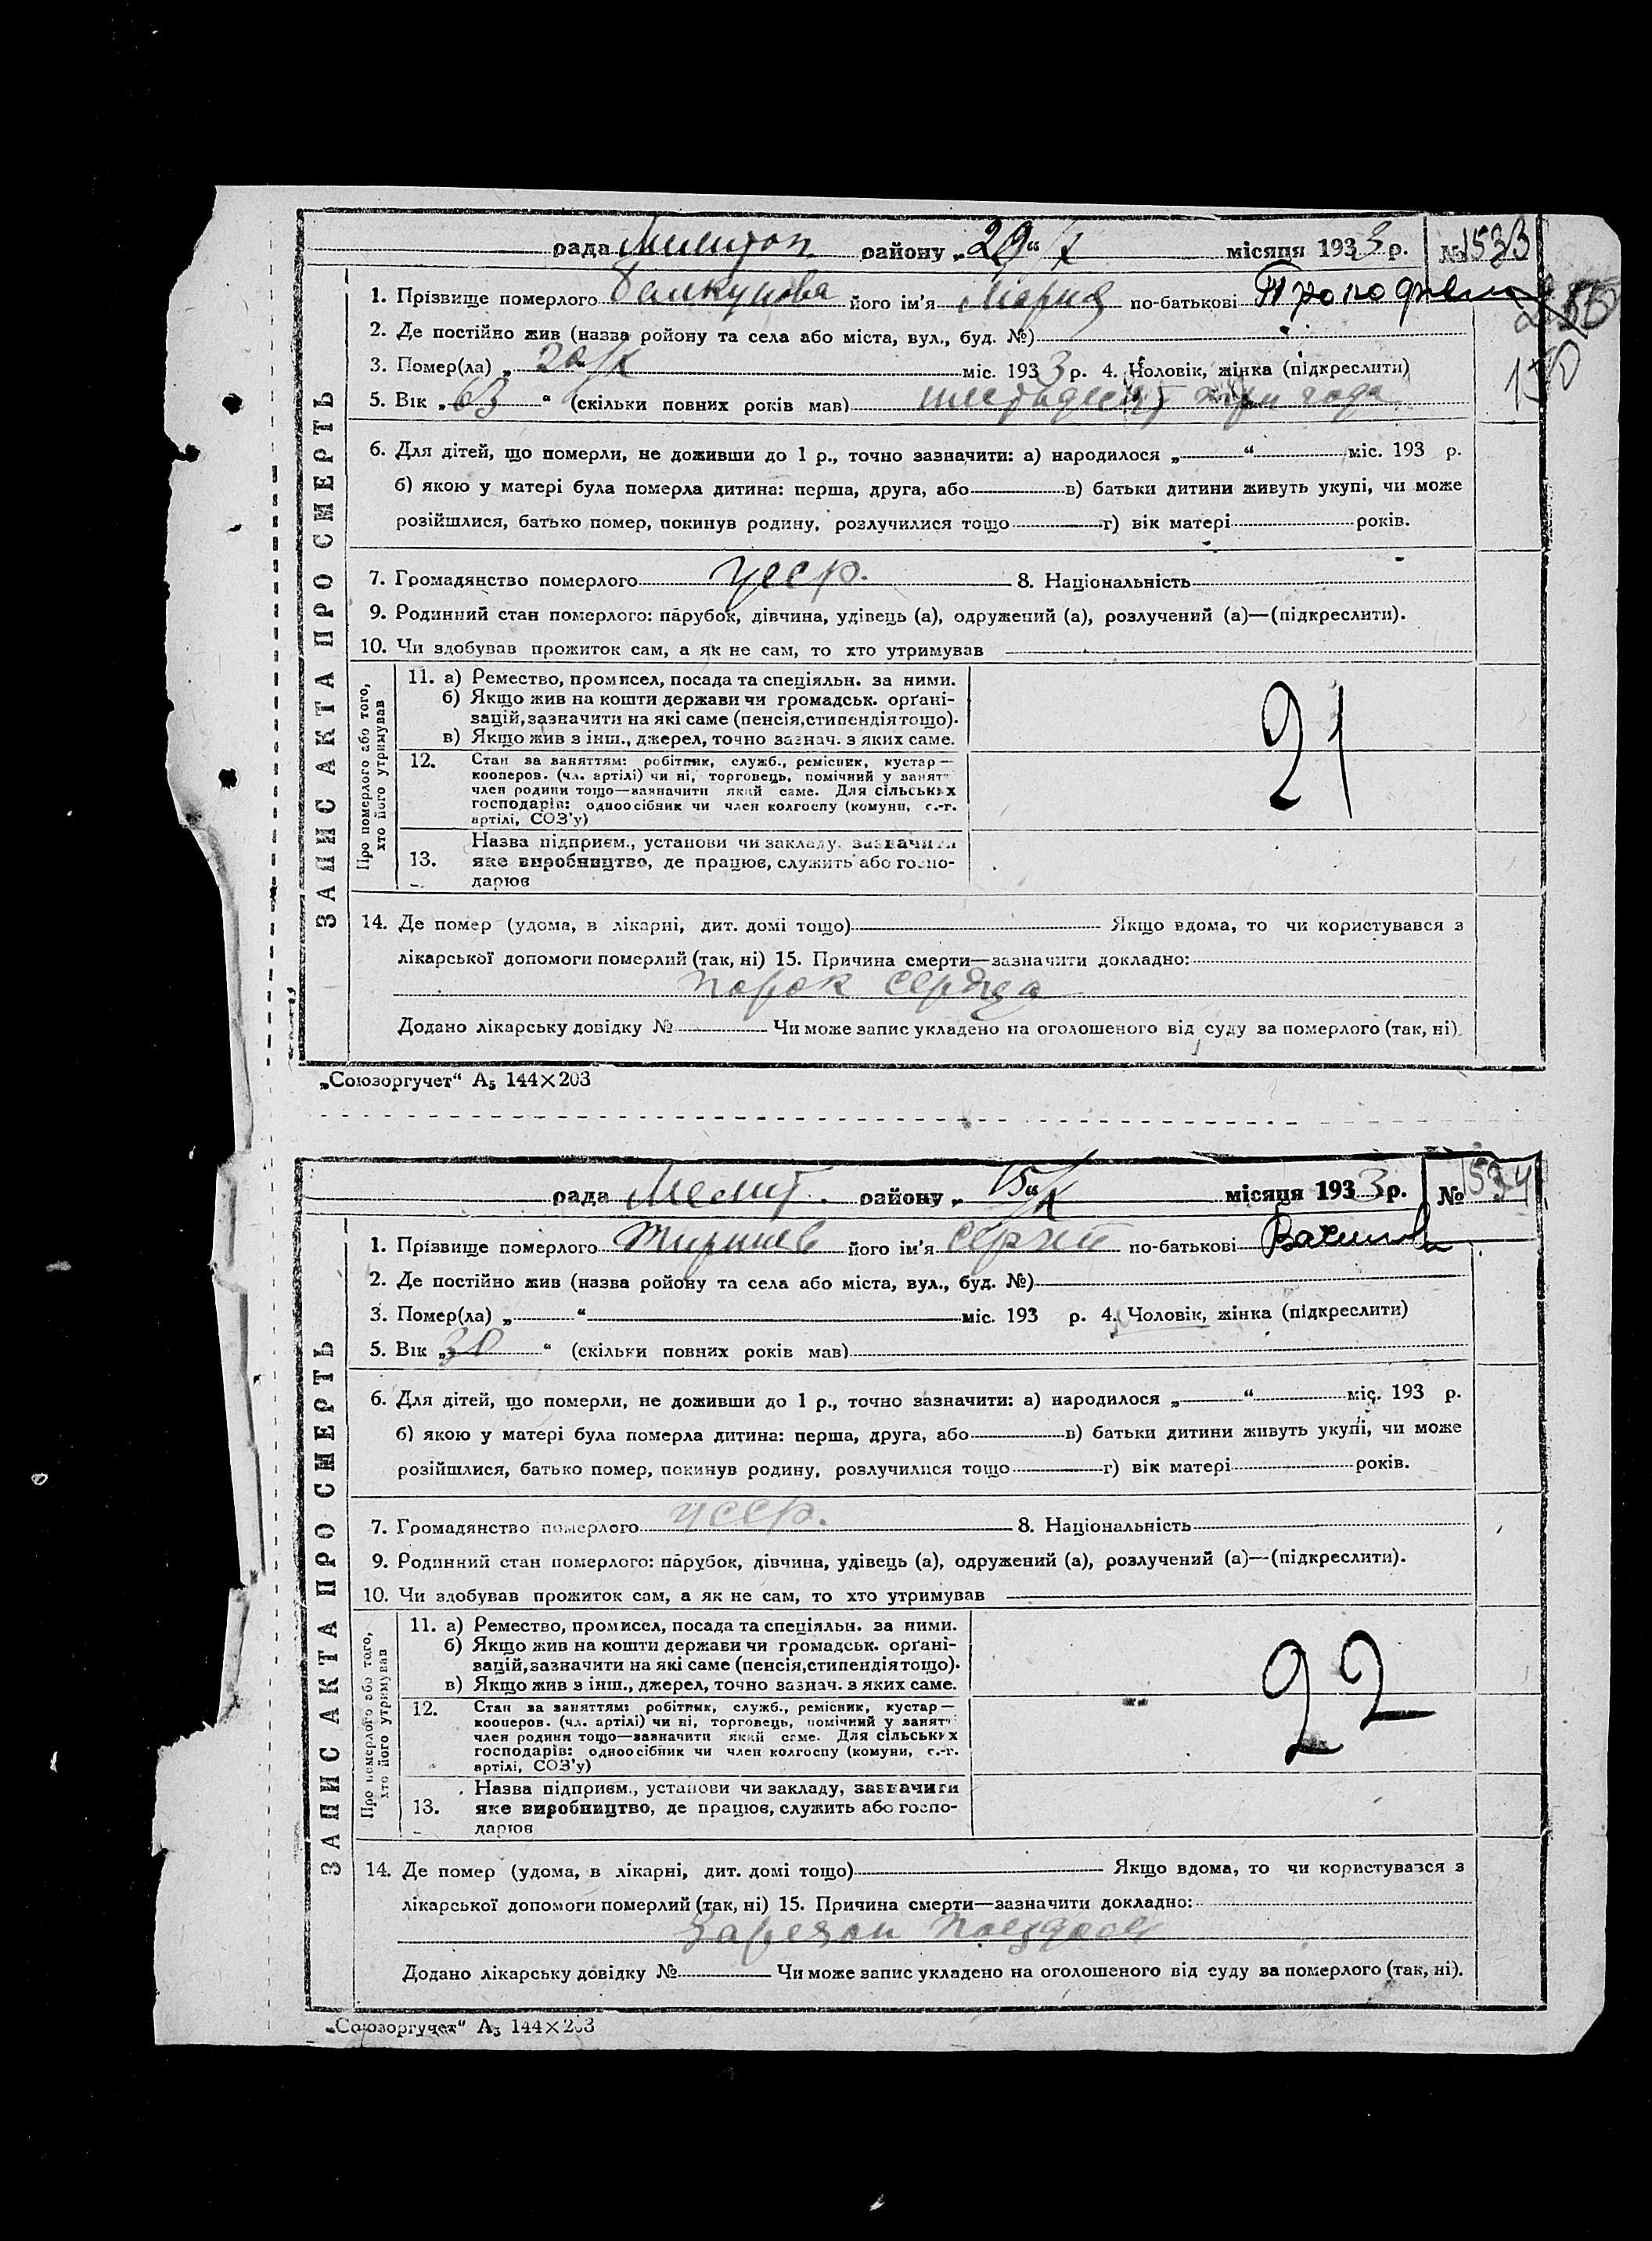 рада Мелитоп. району „29“ X місяця 1933 р. № 1533
1. Прізвище померлого його ім’я Мария по-батькові
2. Де постійно жив (назва ройону та села або міста, вул., буд. №)
3. Помер(ла) „ міс. 1933 р. 4. Чоловік, жінка (підкреслити)
5. Вік „63“ (скільки повних років мав) шестьдесят три года
6. Для дітей, що померли, не доживши до 1 р., точно зазначити: а) народилося „ “ міс. 193 р.
б) якою у матері була померла дитина: перша, друга, або в) батьки дитини живуть укупі, чи може
розійшлися, батько помер, покинув родину, розлучилися тощо г) вік матері років.
7. Громадянство померлого усср. 8. Національність
9. Родинний стан померлого: парубок, дівчина, удівець (а), одружений (а), розлучений (а)—(підкреслити).
10. Чи здобував прожиток сам, а як не сам, то хто утримував
ЗАПИС АКТА ПРО СМЕРТЬ
Про померлого або того,
хто його утримував
11. а) Ремество, промисел, посада та спеціяльн. за ними.
б) Якщо жив на кошти держави чи громадськ. орґані-
зацій, зазначити на які саме (пенсія, стипендія тощо).
в) Якщо жив з інш., джерел, точно зазнач. з яких саме.
21
12. Стан за заняттям: робітник, служб., ремісник, кустар—
кооперов. (чл. артілі) чи ні, торговець, помічний у занят
член родини тощо—зазначити який саме. Для сільських
господарів: одноосібник чи член колгоспу (комуни, с.-г.
артілі, СОЗ’у)
13. Назва підприєм., установи чи закладу, зазначити
яке виробництво, де працює, служить або госпо-
дарює
14. Де помер (удома, в лікарні, дит. домі тощо) Якщо вдома, то чи користувався з
лікарської допомоги померлий (так, ні) 15. Причина смерти—зазначити докладно:
порок сердца
Додано лікарську довідку № Чи може запис укладено на оголошеного від суду за померлого (так, ні).
„Союзоргучет“ А₅ 144×203
рада Мелит. району „15“ X місяця 1933 р. № 1534
1. Прізвище померлого його ім’я Сергей по-батькові
2. Де постійно жив (назва ройону та села або міста, вул., буд. №)
3. Помер(ла) „ “ міс. 193 р. 4. Чоловік, жінка (підкреслити)
5. Вік „30“ (скільки повних років мав)
6. Для дітей, що померли, не доживши до 1 р., точно зазначити: а) народилося „ “ міс. 193 р.
б) якою у матері була померла дитина: перша, друга, або в) батьки дитини живуть укупі, чи може
розійшлися, батько помер, покинув родину, розлучилися тощо г) вік матері років.
7. Громадянство померлого усср. 8. Національність
9. Родинний стан померлого: парубок, дівчина, удівець (а), одружений (а), розлучений (а)—(підкреслити).
10. Чи здобував прожиток сам, а як не сам, то хто утримував
ЗАПИС АКТА ПРО СМЕРТЬ
Про померлого або того,
хто його утримував
11. а) Ремество, промисел, посада та спеціяльн. за ними.
б) Якщо жив на кошти держави чи громадськ. орґані-
зацій, зазначити на які саме (пенсія, стипендія тощо).
в) Якщо жив з інш., джерел, точно зазнач. з яких саме.
22
12. Стан за заняттям: робітник, служб., ремісник, кустар—
кооперов. (чл. артілі) чи ні, торговець, помічний у занят
член родини тощо—зазначити який саме. Для сільських
господарів: одноосібник чи член колгоспу (комуни, с.-г.
артілі, СОЗ’у)
13. Назва підприєм., установи чи закладу, зазначити
яке виробництво, де працює, служить або госпо-
дарює
14. Де помер (удома, в лікарні, дит. домі тощо) Якщо вдома, то чи користувався з
лікарської допомоги померлий (так, ні) 15. Причина смерти—зазначити докладно:
Зарезан поездом
Додано лікарську довідку № Чи може запис укладено на оголошеного від суду за померлого (так, ні).
„Союзоргучет“ А₅ 144×203